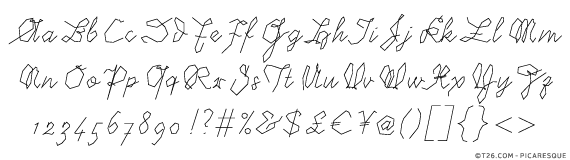 Aa Bb Cc Dd Ee Ff Gg Hh Ii Jj Kk Ll Mm
Nn Oo Pp Qq Rr Ss Tt Uu Vv Ww Xx Yy Zz
1234567890!?#%&$£€¥@()[]{}<>
©T26.COM - PICARESQUE